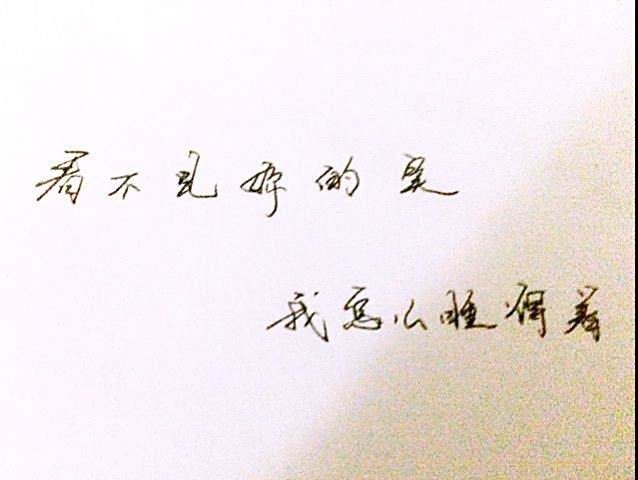 看不见你的笑
我怎么睡得着